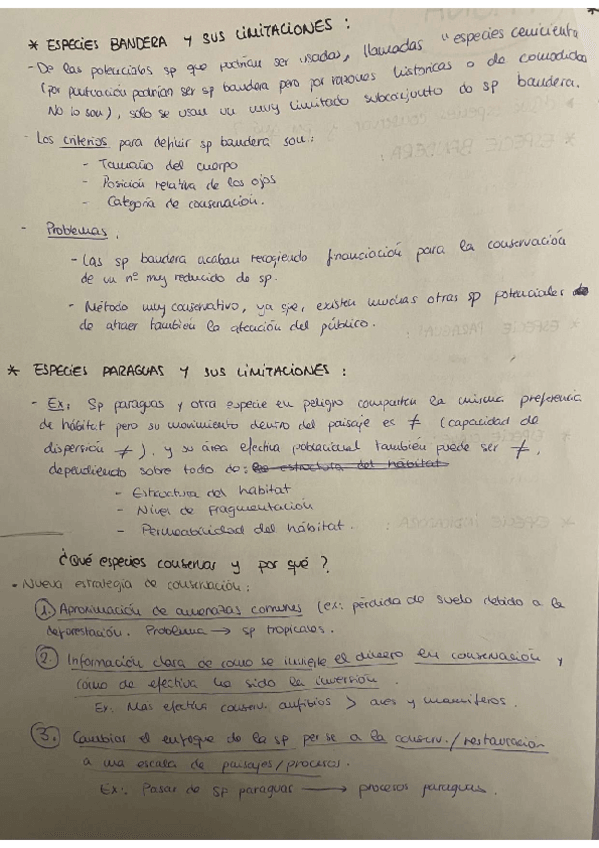 * ESPECIES BANDERA Y SUS LIMITACIONES :
- De las potenciales sp que podrían ser usadas, llamadas "especies cenicienta
(por puntuación podrían ser sp bandera pero por razones históricas o de comodidad
No lo son), sólo se usan un muy limitado subconjunto de sp bandera.
- Los criterios para definir sp bandera son:
- Tamaño del cuerpo
- Posición relativa de los ojos
- Categoría de conservación.
- Problemas.
- Las sp bandera acaban recogiendo financiación para la conservación
de un nº muy reducido de sp.
- Método muy conservativo, ya que, existen muchas otras sp potenciales
de atraer también la atención del público.
* ESPECIES PARAGUAS Y SUS LIMITACIONES :
- Ex: Sp paraguas y otra especie en peligro comparten la misma preferencia
de hábitat pero su movimiento dentro del paisaje es ≠ (capacidad de
dispersión ≠), y su área efectiva poblacional también puede ser ≠,
dependiendo sobre todo de: la estructura del hábitat
- Estructura del hábitat
- Nivel de fragmentación
- Permeabilidad del hábitat.
¿Qué especies conservar y por qué?
- Nueva estrategia de conservación:
1. Aproximación de amenazas comunes (ex: pérdida de suelo debido a la
deforestación. Problema → sp tropicales.
2. Información clara de cómo se invierte el dinero en conservación y
cómo de efectiva ha sido la inversión.
Ex: Más efectiva conserv. anfibios > aves y mamíferos.
3. Cambiar el enfoque de la sp per se a la conserv./restauración
a una escala de paisajes/procesos.
Ex: Pasar de sp paraguas → procesos paraguas.